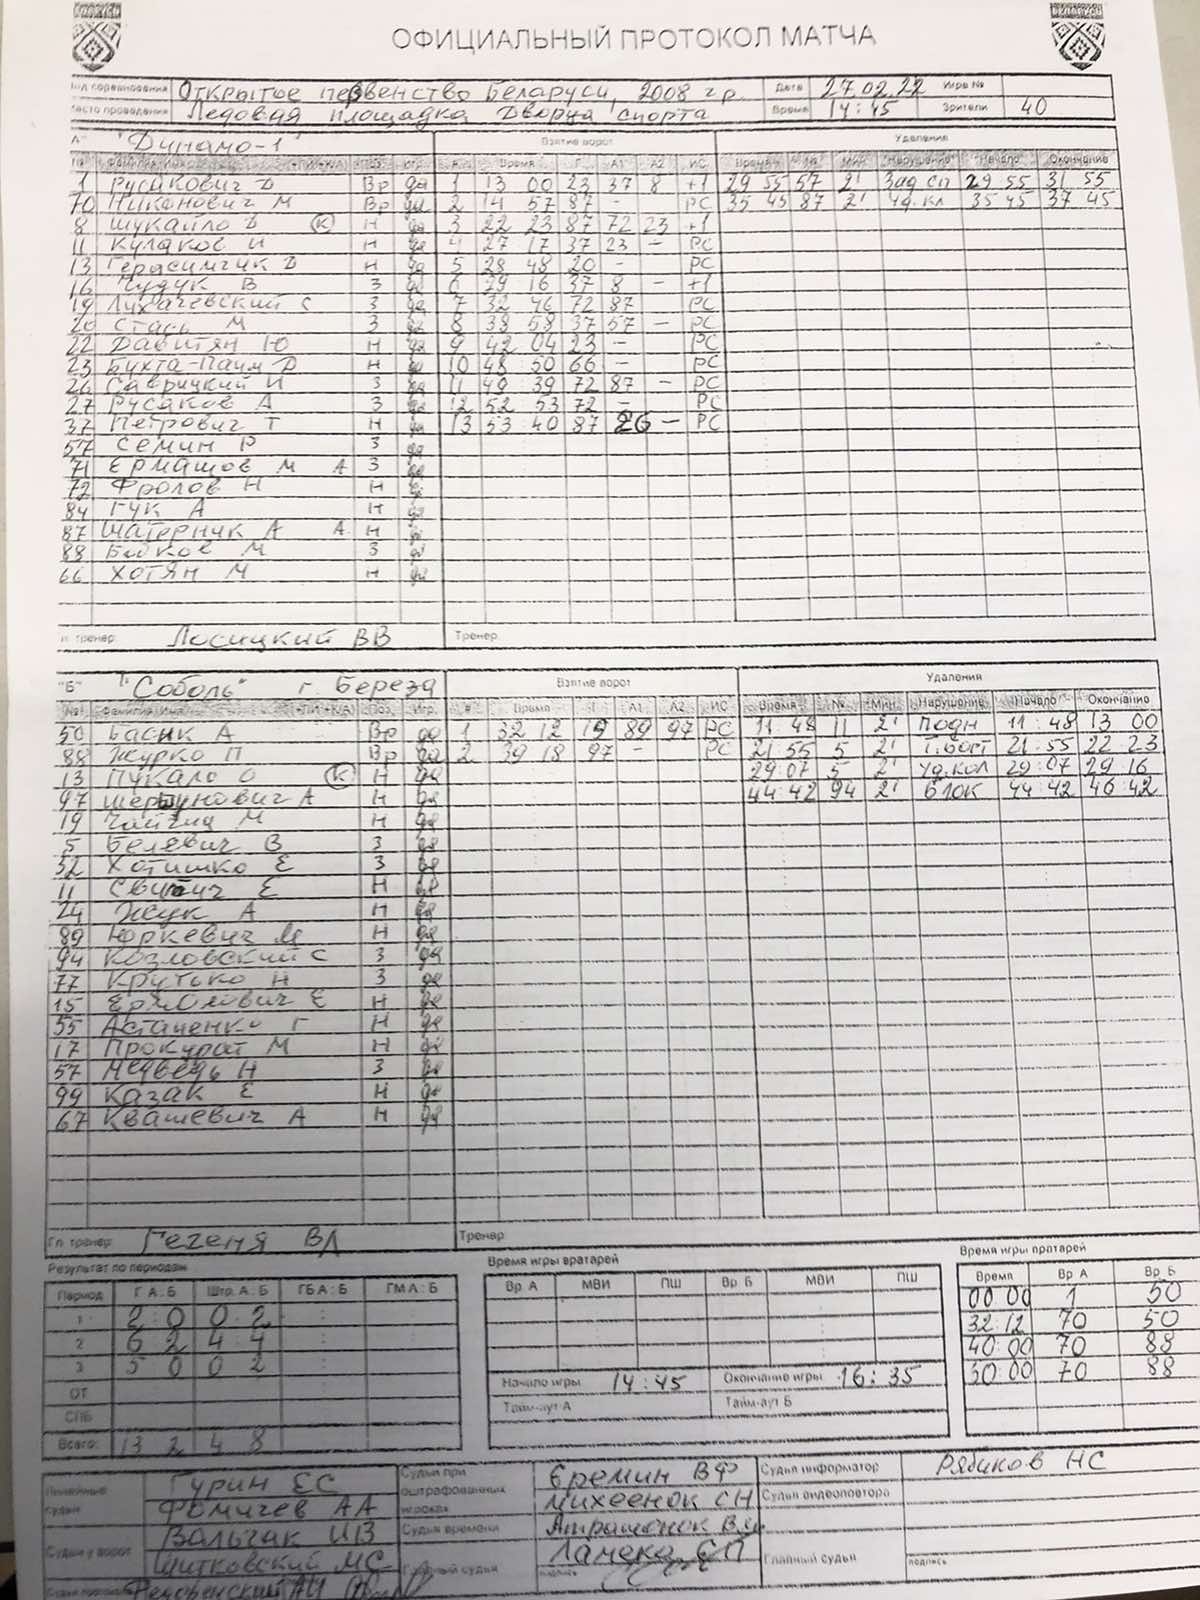 БЕЛАРУСЬ БЕЛАРУСЬ
ОФИЦИАЛЬНЫЙ ПРОТОКОЛ МАТЧА
Вид соревнования Открытое первенство Беларуси, 2008 г.р. Дата 27.02.22 Игра №
Место проведения Ледовая площадка Дворца спорта Время 14:45 Зрители 40
"А" "Динамо-1" Взятие ворот Удаления
№ Фамилия Имя Поз Игр # Время Г А1 А2 ИС Время № Мин Нарушение Начало Окончание
1 Русакович Д Вр да 1 13 00 23 37 8 +1 29 55 57 2' Зад сп 29 55 31 55
70 Никонович М Вр да 2 14 57 87 - РС 35 45 87 2' Уд. кл 35 45 37 45
8 Шукайло Д (К) Н да 3 22 23 87 72 23 +1
11 Кулаков И Н да 4 27 17 37 23 - РС
13 Герасимчик Д Н да 5 28 48 20 - РС
16 Чудук В З да 6 29 16 37 8 - +1
19 Лухачевский С З да 7 32 46 72 87 РС
20 Стась М З да 8 38 58 37 57 - РС
22 Давитян Ю Н да 9 42 04 23 - РС
23 Бухта-Паим Д Н да 10 48 50 66 - РС
26 Савицкий И З да 11 49 39 72 87 - РС
27 Русаков А З да 12 52 53 72 - РС
37 Петрович Т Н да 13 53 40 87 26 - РС
57 Семин Р З да
71 Ермашов М А З да
72 Фролов Н Н да
84 Гук А Н да
87 Шатерник А А Н да
88 Бойков М З да
66 Хотян М Н да
Гл. тренер Лосицкий ВВ Тренер
"Б" "Соболь" г. Береза Взятие ворот Удаления
№ Фамилия Имя Поз Игр # Время Г А1 А2 ИС Время № Мин Нарушение Начало Окончание
50 Басык А Вр да 1 32 12 19 89 97 РС 11 48 11 2' Подн 11:48 13 00
88 Журко П Вр да 2 39 18 97 - РС 21 55 5 2' Т.борт 21:55 22 23
13 Пукало О (К) Н да 29:07 5 2' Уд.кол 29:07 29 16
97 Шербунович А Н да 44:42 94 2' Блок 44:42 46:42
19 М Н да
5 Белевич В З да
32 Хотишко Е З да
11 Е Н да
24 Жук А Н да
89 Юркевич М Н да
94 Козловский С З да
77 Крутько Н З да
15 Ермолович Е Н да
55 Астапенко Г Н да
17 Прокурат М Н да
57 Медведь Н З да
99 Казак Е Н да
67 Квашевич А Н да
Гл. тренер Гегеня ВЛ Тренер
Результат по периодам Время игры вратарей Время игры вратарей
Период Г А : Б Штр. А : Б ГБ А : Б ГМ А : Б Вр. А МВИ ПШ Вр. Б МВИ ПШ Время Вр. А Вр. Б
1 2 0 0 2 00 00 1 50
2 6 2 4 4 32:12 70 50
3 5 0 0 2 40:00 70 88
ОТ Начало игры 14:45 Окончание игры 16:35 50:00 70 88
СПБ Тайм-аут А Тайм-аут Б
Всего: 13 2 4 8
Линейные судьи Гурин ЕС Судьи при оштрафованных игроках Еремин ВФ Судья информатор Рябиков НС
Фомичев АА Михеенок СН Судья видеоповтора
Судьи у ворот Вальчик ИВ Судья времени
Шитковский МС Главный судья Ламеко ЕП Главный судья
подпись подпись